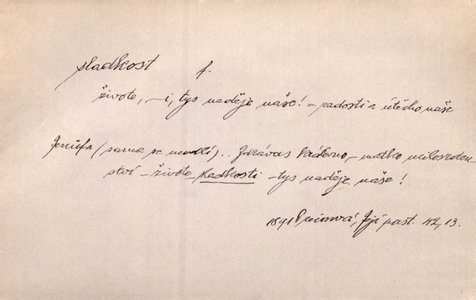 sladkost f.
živote, – i, tys naděje naše! – radosti a útěcho naše
Jenůfa (sama se modlí).. Zdrávas královno, – matko milosrden
ství – živote sladkosti – tys naděje naše!
1891 Preissová, Její past. 42, 13.